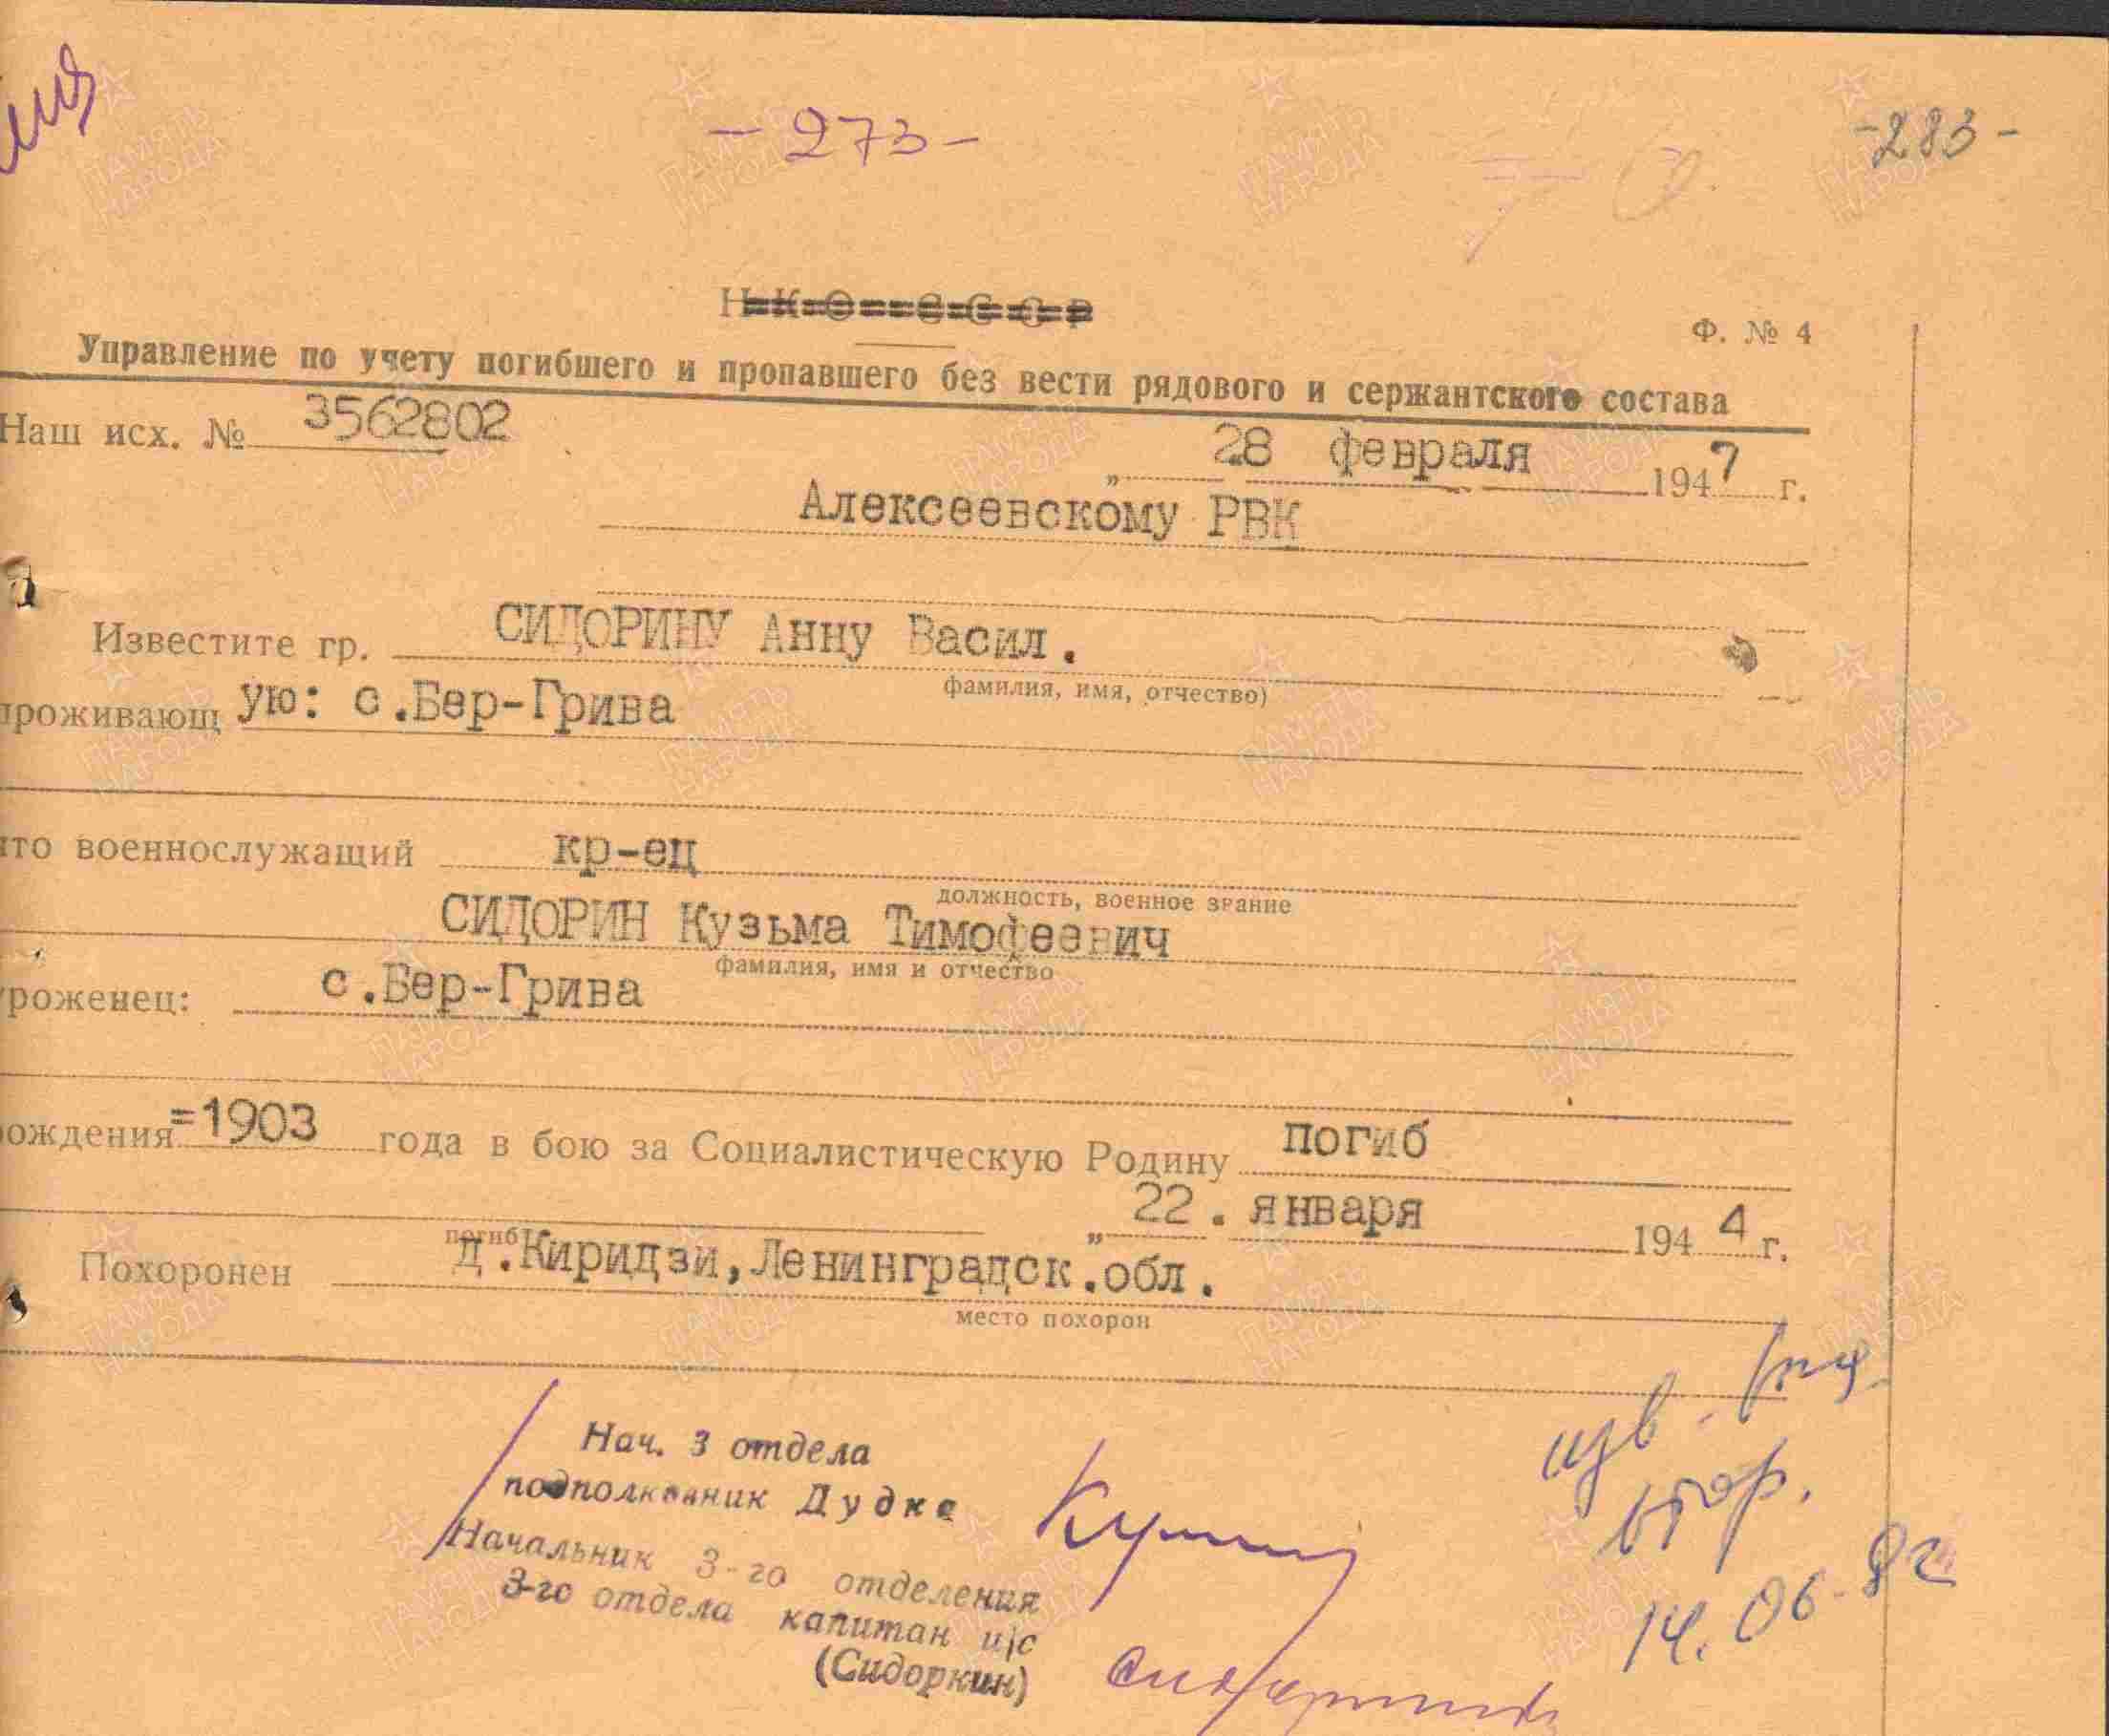 - 273 -
- 283 -
НКО СССР
Ф. № 4
Управление по учету погибшего и пропавшего без вести рядового и сержантского состава
Наш исх. № 3562802
„ 28 февраля 1947 г.
Алексеевскому РВК
Известите гр. СИДОРИНУ Анну Васил.
фамилия, имя, отчество)
проживающ ую: с.Бер-Грива
что военнослужащий кр-ец
должность, военное звание
СИДОРИН Кузьма Тимофеевич
фамилия, имя и отчество
уроженец: с.Бер-Грива
рождения =1903 года в бою за Социалистическую Родину погиб
„ 22. января 1944 г.
погиб
Похоронен д.Киридзи, Ленинградск.обл.
место похорон
Нач. 3 отдела
подполковник Дудка
Начальник 3-го отделения
3-го отдела капитан и/с
(Сидоркин)
изв.
втор.
14.06.82
ПАМЯТЬ НАРОДА